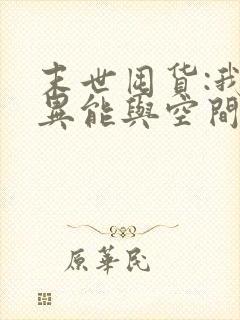 末世囤货:我
異能與空間
原華民